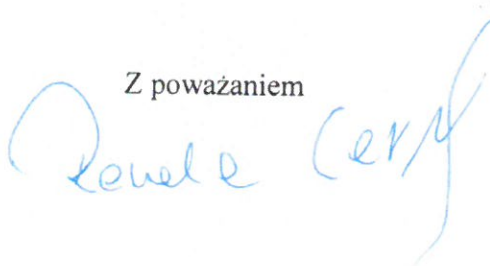 Z poważaniem
Renata